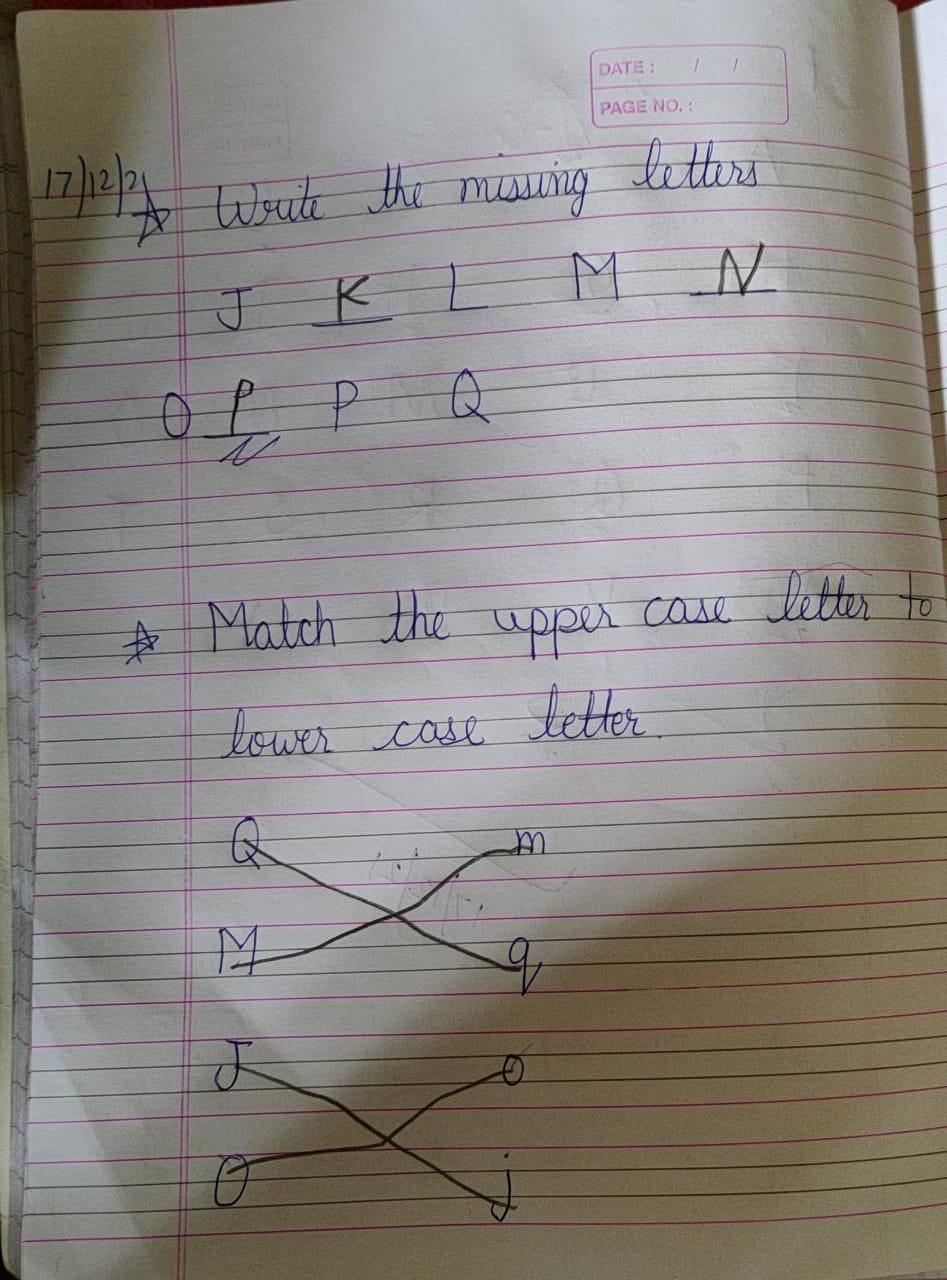 DATE : / /
PAGE NO. :
17/12/21 Write the missing letters
J K L M N
O P P Q
Match the upper case letter to
lower case letter.
Q m
M q
J o
O j